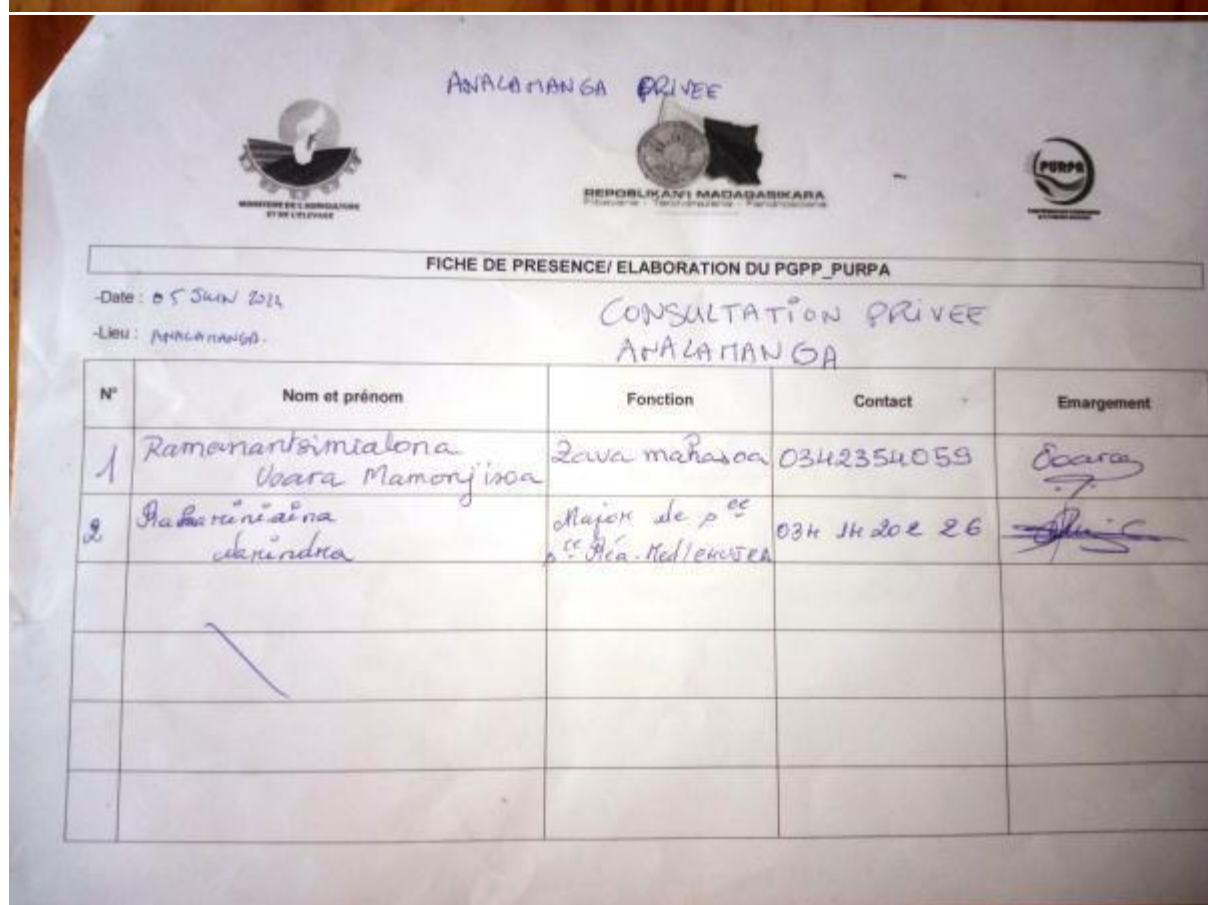 ANALAMANGA PRIVEE
MINISTERE DE L'AGRICULTURE
ET DE L'ELEVAGE
REPOBLIKAN'I MADAGASIKARA
Fitiavana - Tanindrazana - Fandrosoana
PURPA
FICHE DE PRESENCE/ ELABORATION DU PGPP_PURPA
-Date : 05 JUIN 2024
CONSULTATION PRIVEE
-Lieu : ANALAMANGA.
ANALAMANGA
N° Nom et prénom Fonction Contact Emargement
1 Ramanantsimialona Zava mahasoa 0342354059
Voara Mamonjisoa
2 Major de
Narindra 034 14 202 26